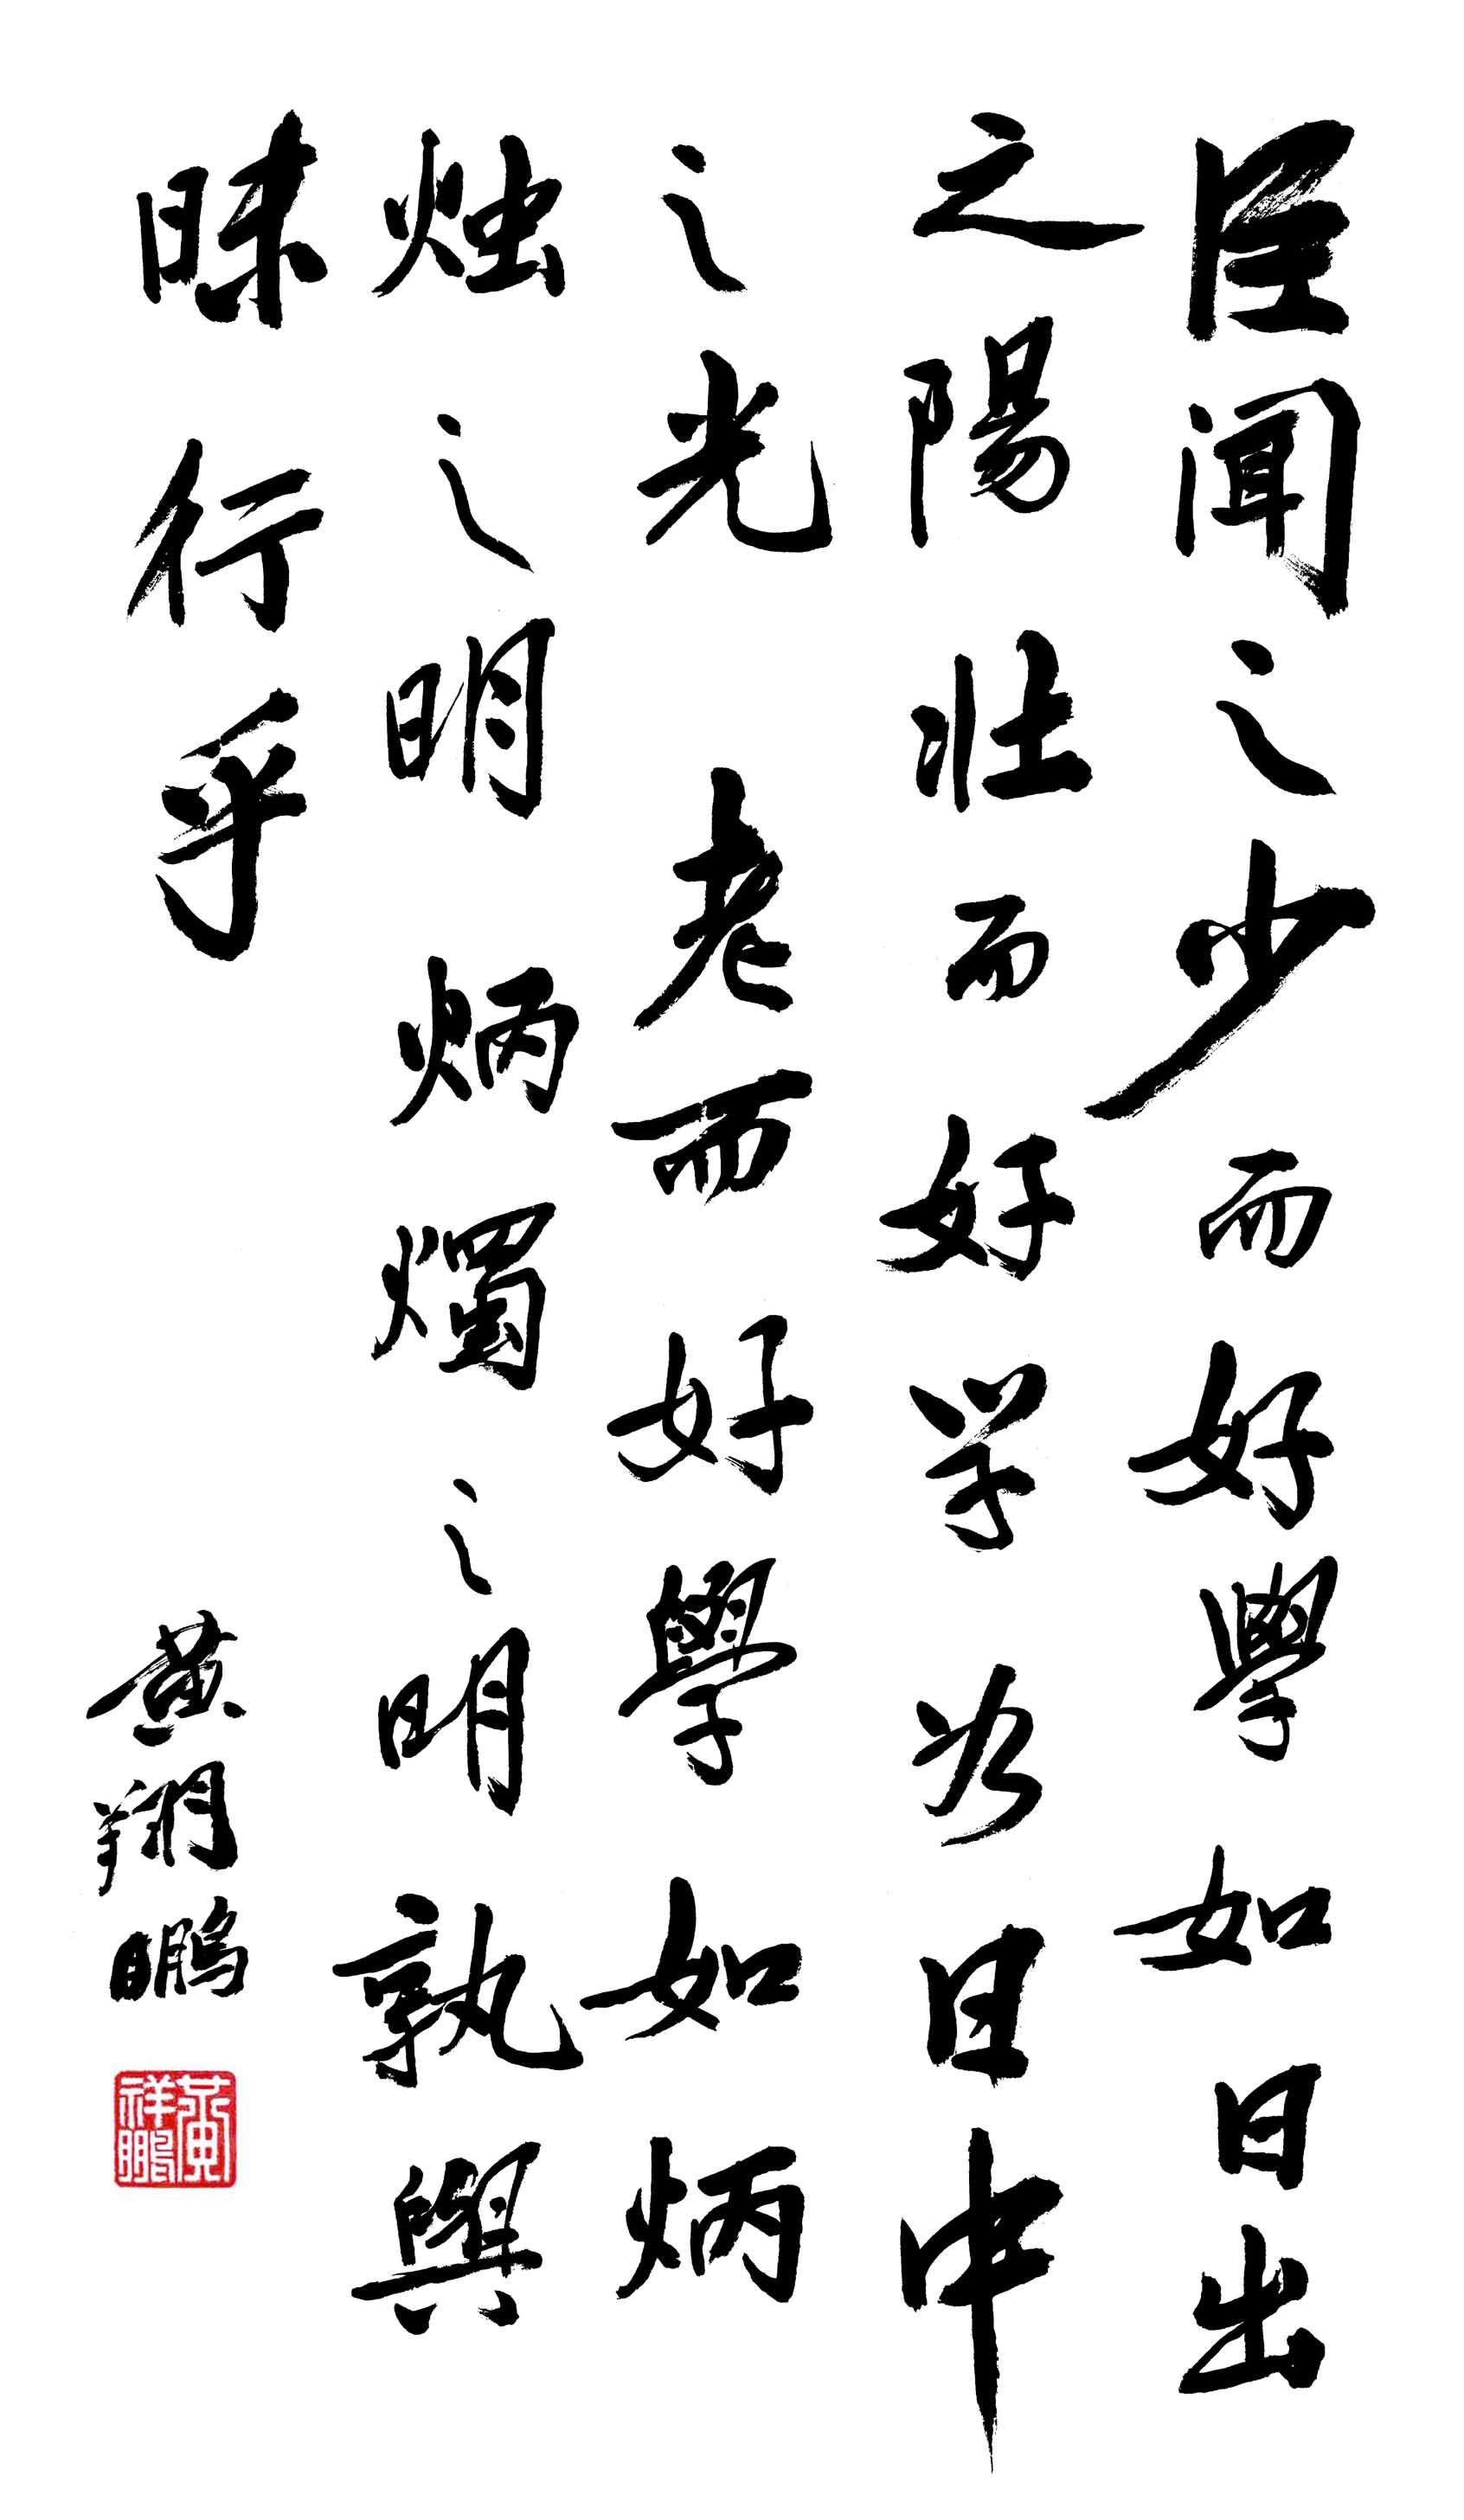 臣闻之少而好學如日出
之陽壮而好学如日中
之光老而好學如炳
烛之明炳燭之明孰與
昧行乎
黄翔鵬
黄祥鵬